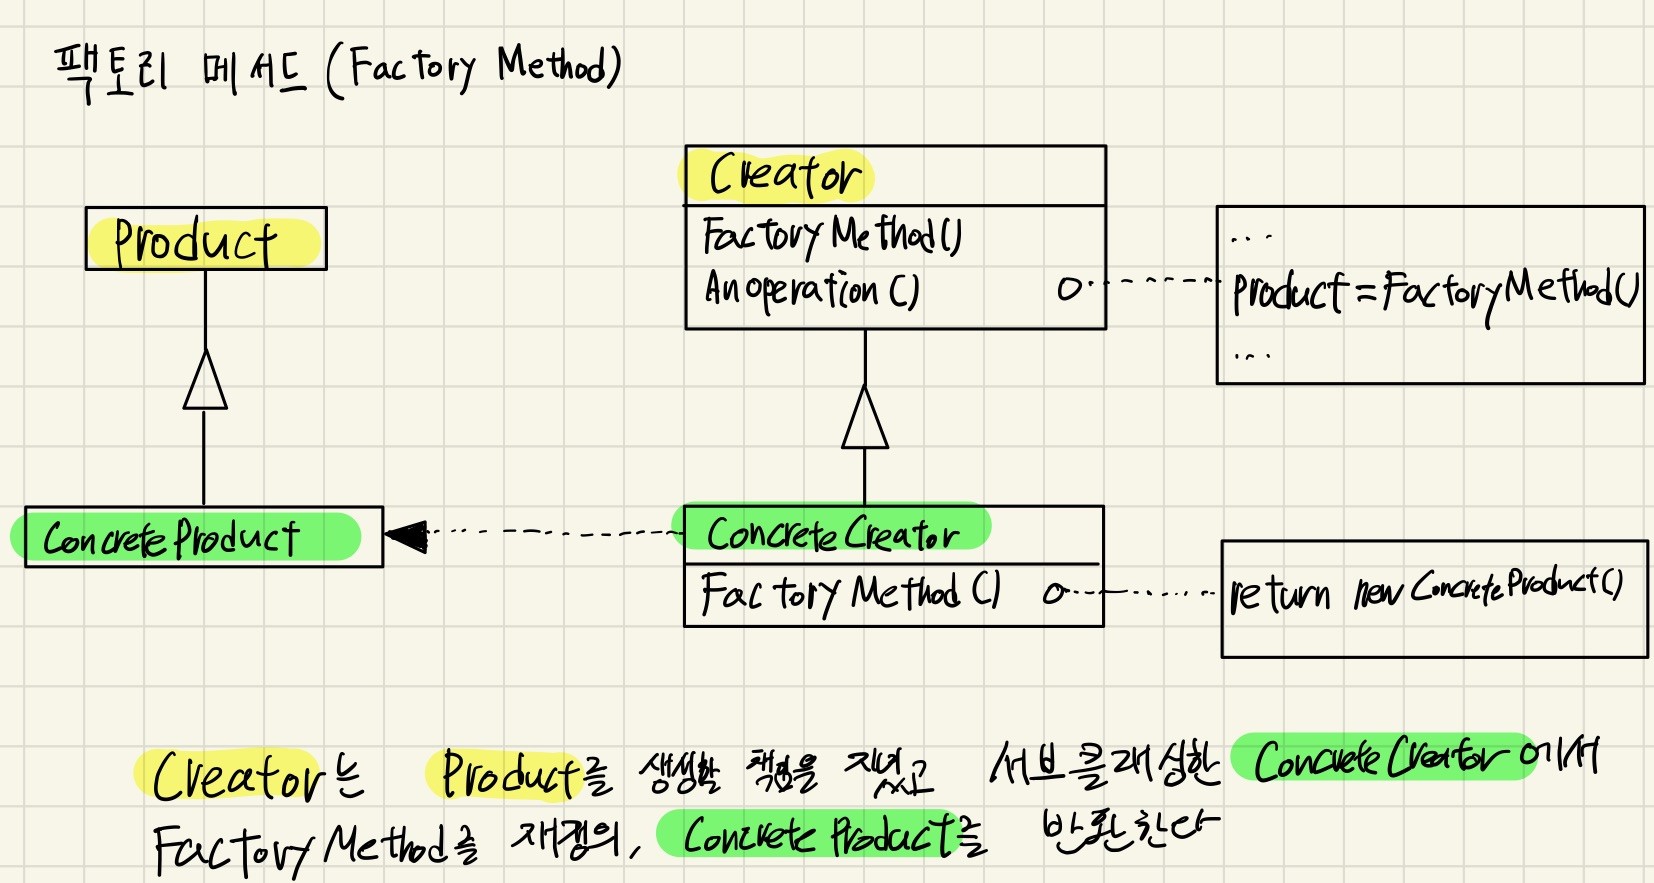 팩토리 메서드 (Factory Method)
Product
Creator
FactoryMethod()
Anoperation()
...
product = FactoryMethod()
...
ConcreteProduct
ConcreteCreator
FactoryMethod()
return new ConcreteProduct()
Creator는 Product를 생성할 책임을 지었고 서브클래싱한 ConcreteCreator에서
FactoryMethod를 재정의, ConcreteProduct를 반환한다